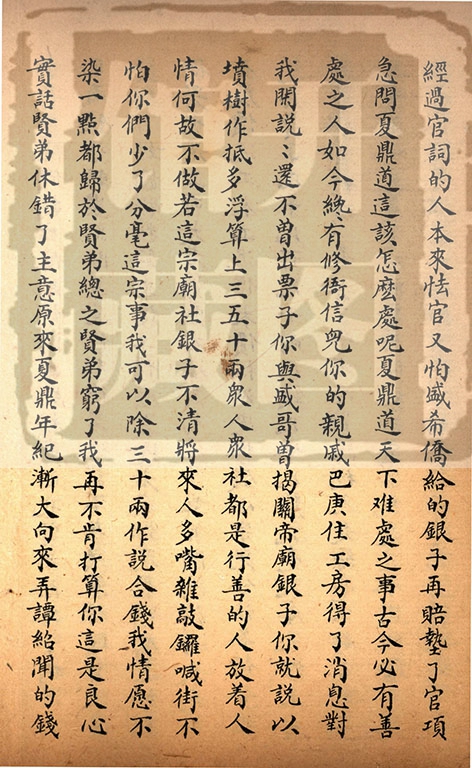 經過官詞的人本來怯官又怕盛希僑給的銀子再賠墊了官項
急問夏鼎道這該怎麼處呢夏鼎道天下难處之事古今必有善
處之人如今總有修衙信皃你的親戚巴庚住工房得了消息對
我閑說〻還不曾出票子你與盛哥曾揭關帝廟銀子你就説以
墳樹作抵多浮算上三五十兩衆人衆社都是行善的人放着人
情何故不做若這宗廟社銀子不清將來人多嘴雜敲鑼喊街不
怕你們少了分毫這宗事我可以除三十兩作説合錢我情愿不
染一㸃都歸於賢弟總之賢弟窮了我再不肯打算你這是良心
實話賢弟休錯了主意原來夏鼎年紀漸大向來弄譚紹聞的錢